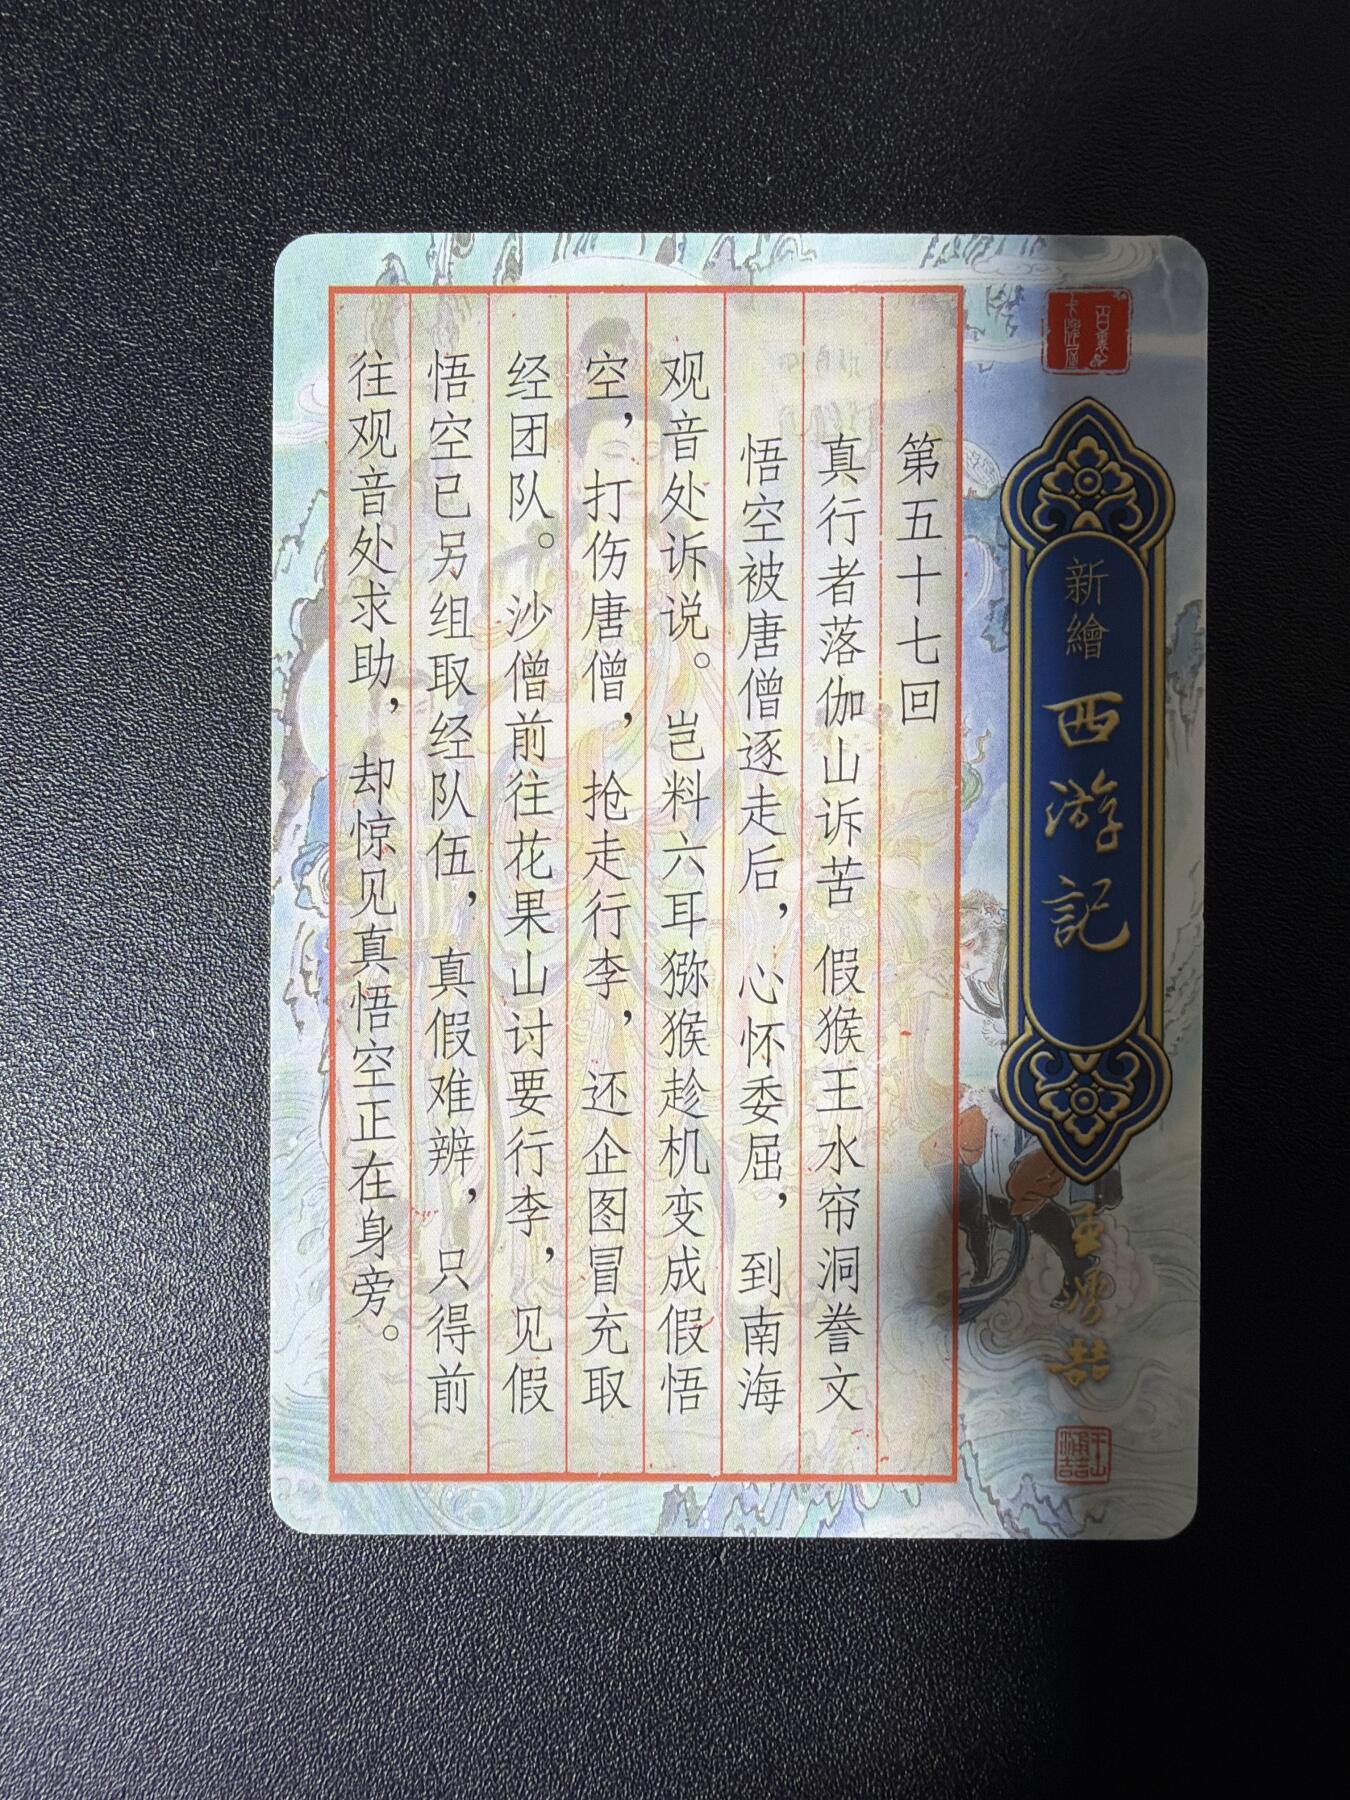 新繪
西游記
第五十七回
真行者落伽山诉苦 假猴王水帘洞誊文
悟空被唐僧逐走后，心怀委屈，到南海
观音处诉说。岂料六耳猕猴趁机变成假悟
空，打伤唐僧，抢走行李，还企图冒充取
经团队。沙僧前往花果山讨要行李，见假
悟空已另组取经队伍，真假难辨，只得前
往观音处求助，却惊见真悟空正在身旁。